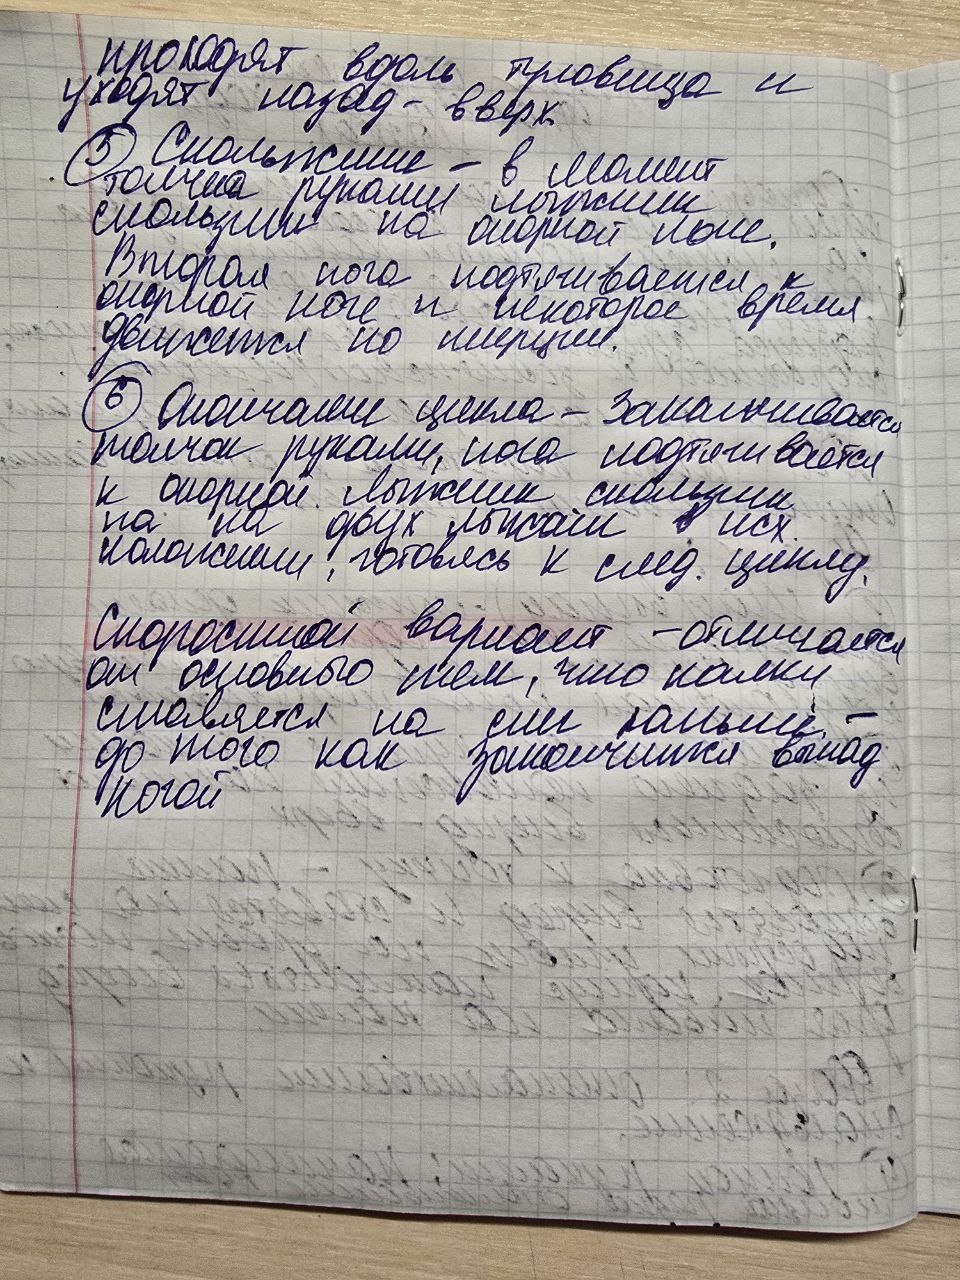 проходят вдоль туловища и
уходят назад - вверх
5 Скольжение - в момент
толчка руками лыжник
скользит на опорной ноге.
Вторая нога подтягивается к
опорной ноге и некоторое время
движется по инерции.
6 Окончание цикла - Заканчивается
толчок руками, нога подтягивается
к опорной. Лыжник скользит
на на двух лыжах в исх.
положении, готовясь к след. циклу.
Скоростной вариант - отличается
от основного тем, что палки
ставятся на снег раньше -
до того как закончится выпад
ногой